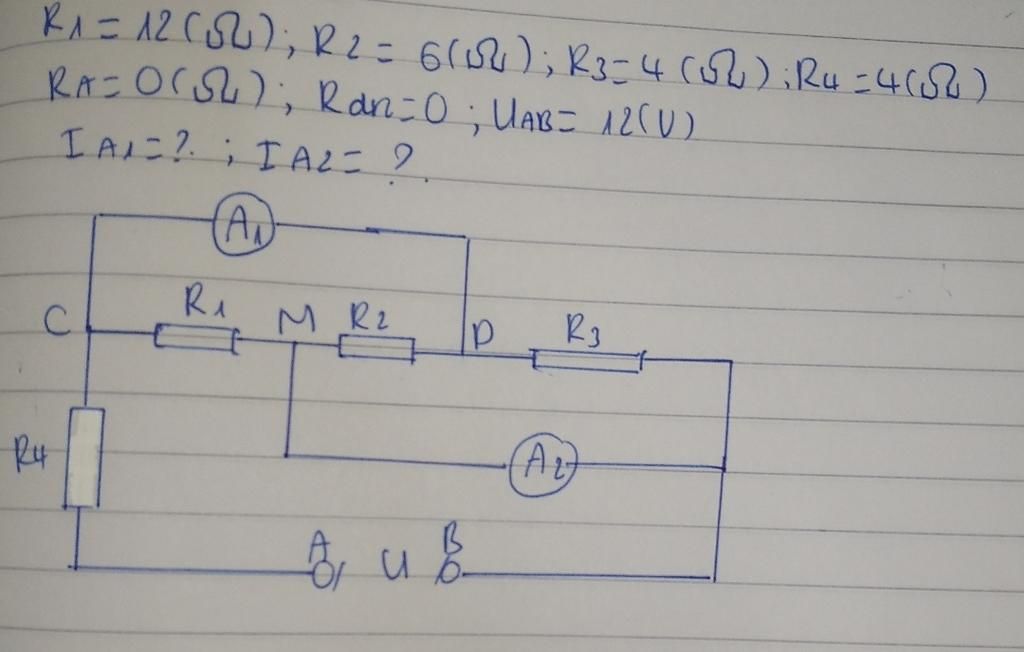 R1 = 12 (Ω); R2 = 6(Ω); R3=4 (Ω); R4=4(Ω)
RA=0(Ω); Rdn=0; UAB= 12(V)
IA1=?.; IA2= ?.
A1
C R1 M R2 D R3
R4 A2
A U B